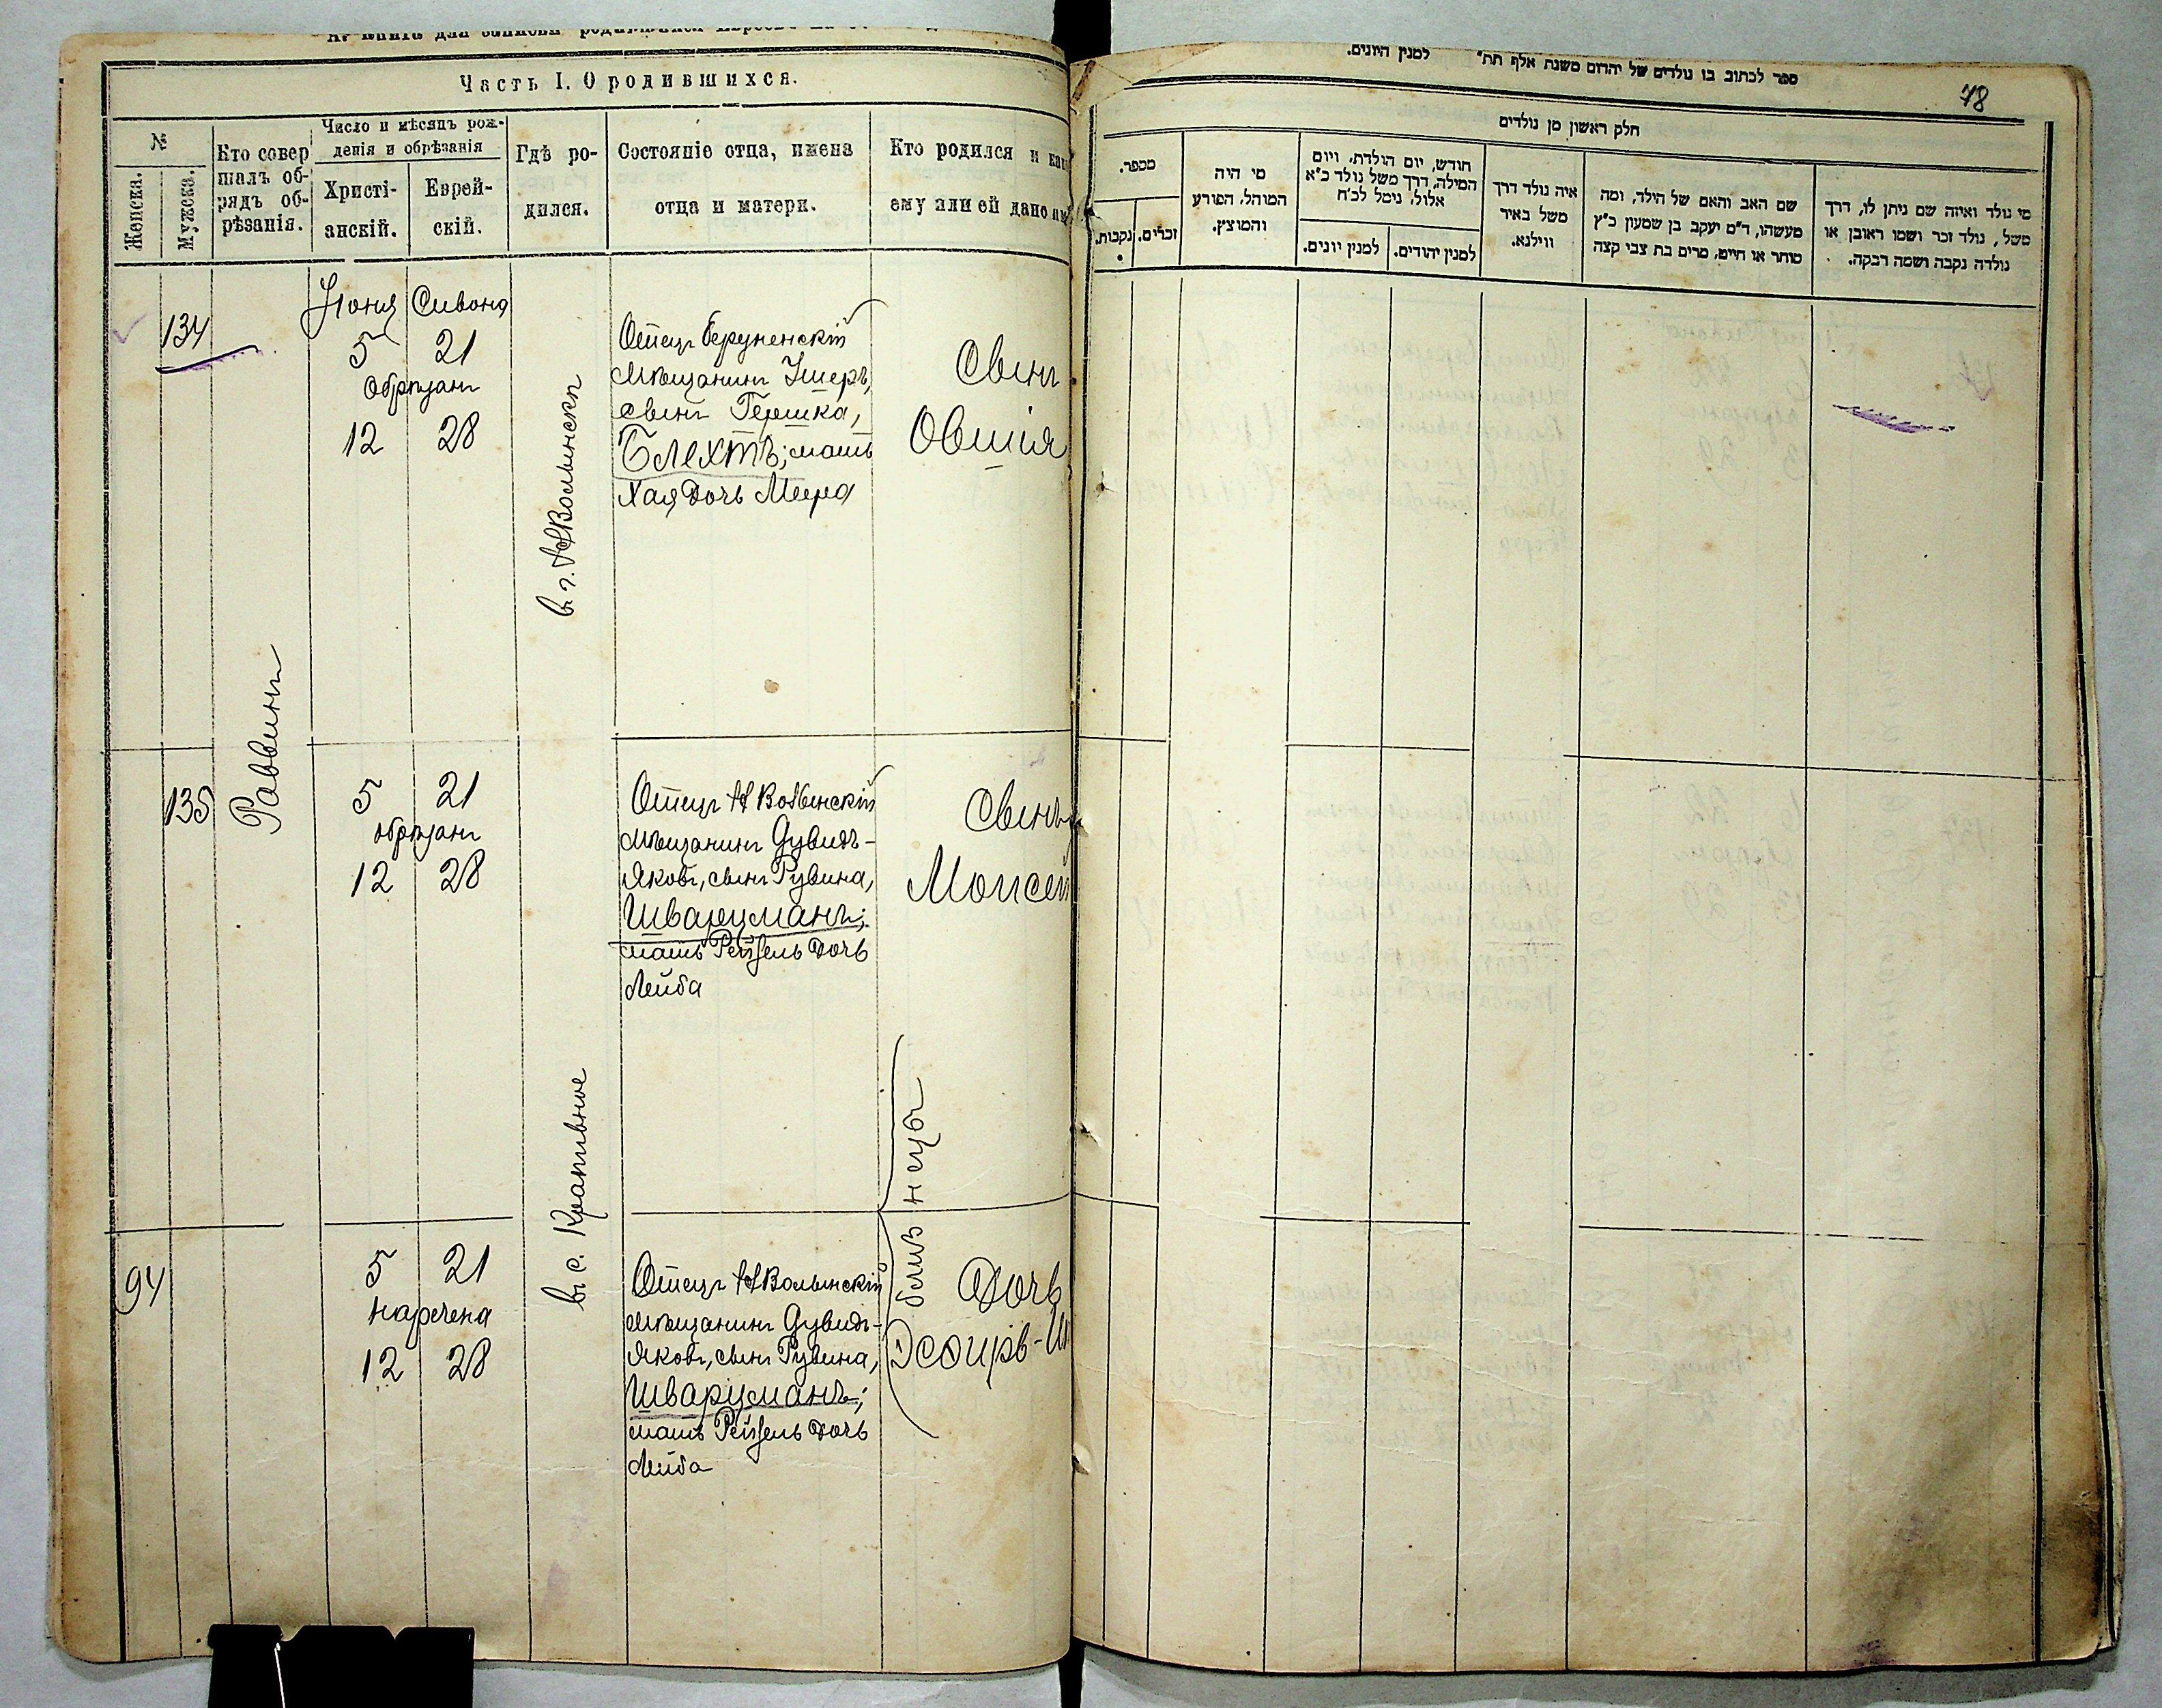 Часть I. О родившихся.
№
Женска.
Мужска.
Кто совер
шалъ об-
рядъ об-
рѣзанія.
Число и мѣсяцъ рож-
денія и обрѣзанія
Христі-
анскій.
Еврей-
скій.
Гдѣ ро-
дился.
Состояніе отца, имена
отца и матери.
Кто родился и как
ему или ей дано им
134
Раввинъ
Іюня Сивона
5 21
Обрѣзанъ
12 28
въ г. НВолынскѣ
Отецъ
Мѣщанинъ Ушеръ,
сынъ Гершка,
Блехтъ; мать
Хая дочь Меера
Сынъ
Овшія
135
5 21
обрѣзанъ
12 28
въ с. Крапивное
Отецъ НВолынскій
мѣщанинъ Дувидъ-
Яковъ, сынъ Рувина,
Шварцманъ;
мать Рейзель дочь
Лейба
Сынъ
Моисей
94
5 21
наречена
12 28
Отецъ НВолынскій
мѣщанинъ Дувидъ-
Яковъ, сынъ Рувина,
Шварцманъ;
мать Рейзель дочь
Лейба
близнецы
Дочь
ספר לכתוב בו נולדים של יהדום משנת אלף תת״ למנין היונים.
78
חלק ראשון מן נולדים
מספר.
נקבות.
זכרים.
מי היה
המוהל, הפורע
והמוצץ.
חודש, יום הולדת, ויום
המילה, דרך משל נולד כ״א
אלול, נימל לכ״ח
למנין יונים.
למנין יהודים.
איה נולד דרך
משל באיר
ווילנא.
שם האב והאם של הילד, ומה
מעשהו, ד״מ יעקב בן שמעון כ״ץ
סוחר או חייט, מרים בת צבי קצה
מי נולד ואיזה שם ניתן לו, דרך
משל, נולד זכר ושמו ראובן או
נולדה נקבה ושמה רבקה.